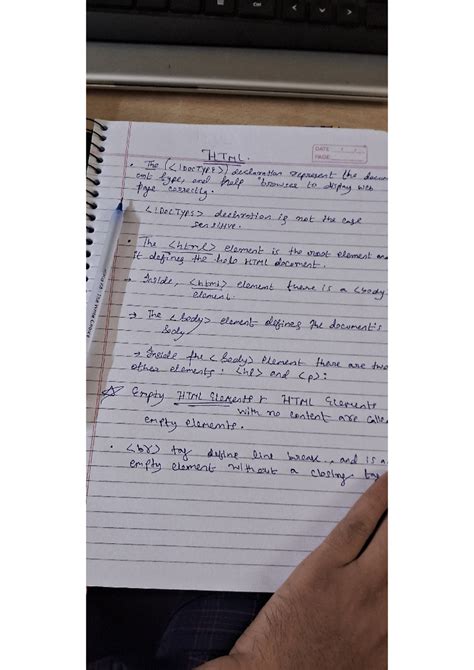 HTML
DATE
PAGE
• The (<!DOCTYPE>) declaration represent the docum
ent type, and help browser to display web
page correctly.
<!DOCTYPE> declaration is not the case
sensitive.
• The <html> element is the root element and
it defines the hole HTML document.
→ Inside, <html> element there is a <body
element.
→ The <body> element defines the document's
body
→ Inside the <body> element there are two
other elements: <h1> and <p>:
Empty HTML Elements HTML Elements
with no content are calle
empty elements.
• <br> tag define line break, and is a
empty element without a closing tag
Ctrl